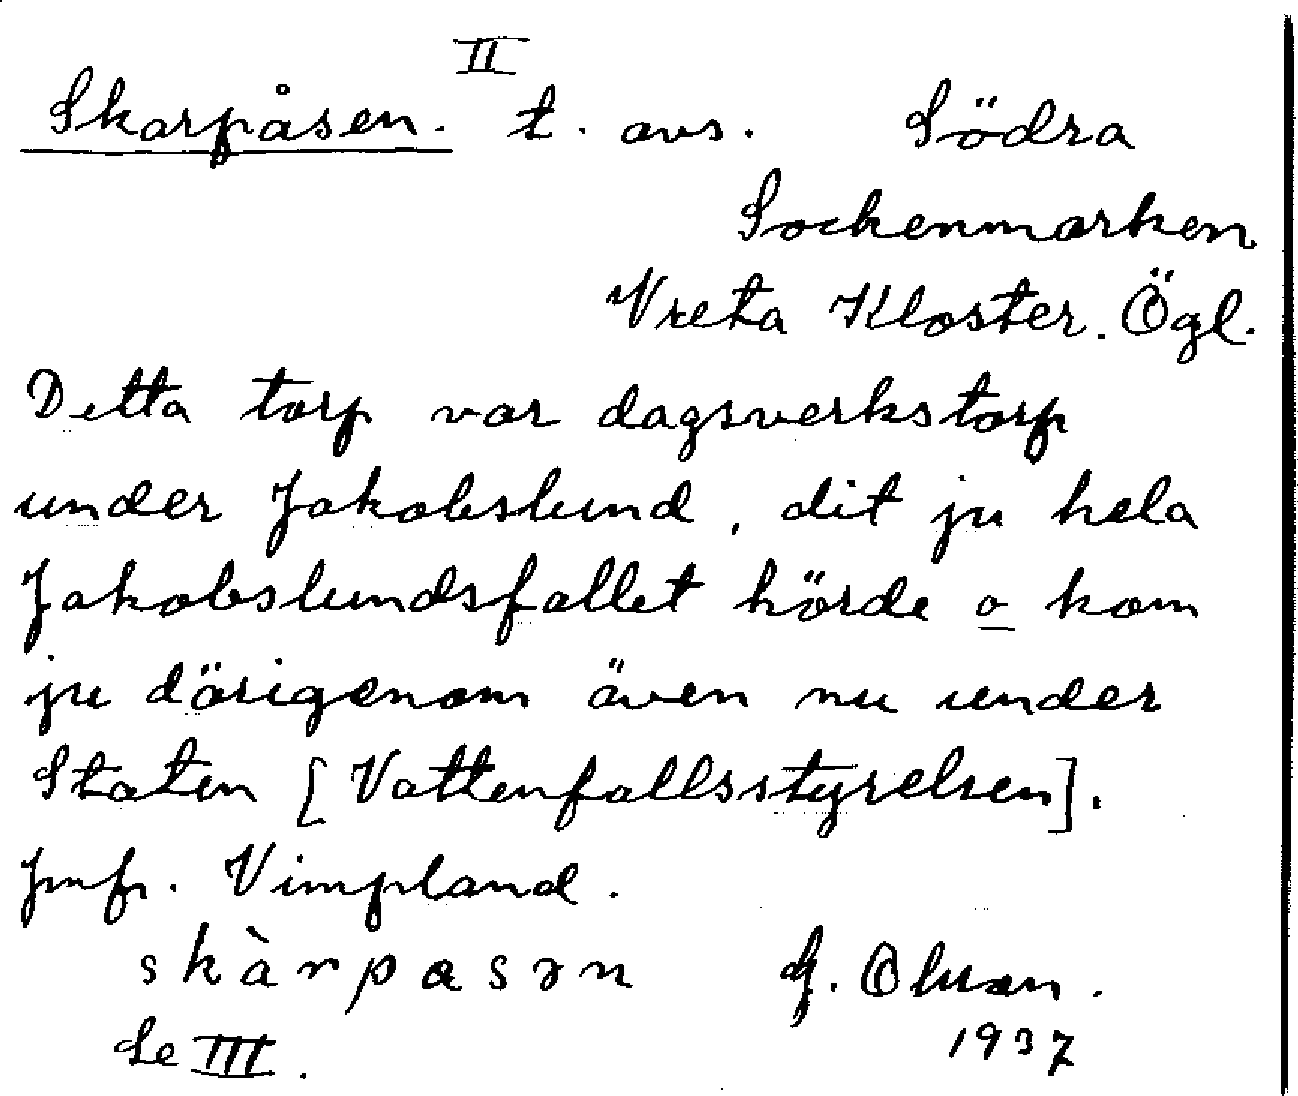 II
Skarpåsen. t. avs. Södra
Sockenmarken
Vreta Kloster. Ögl.
Detta torp var dagsverkstorp
under Jakobslund, dit ju hela
Jakobslundsfallet hörde o kom
ju därigenom även nu under
Staten [Vattenfallsstyrelsen].
Jmfr. Vimpland.
skàrpasən G. Olsson.
Se III. 1937